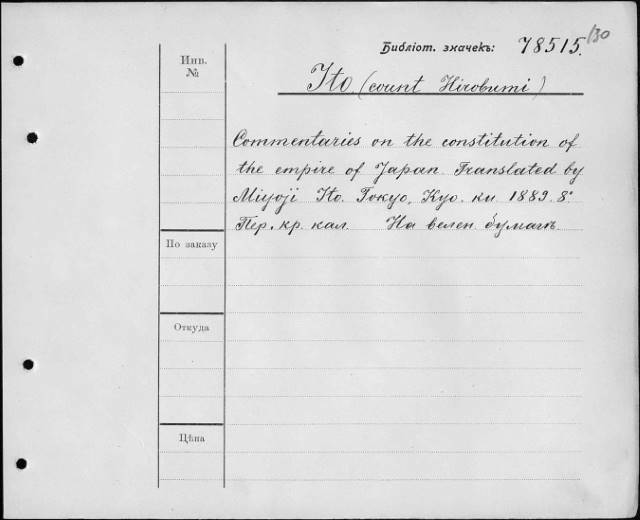 130
Библіот. значекъ: 78515.
Инв. №
Ito. (count Hirobumi)
Commentaries on the constitution of
the empire of Japan. Translated by
Miyoji Ito. Tokyo, Kyo. ku 1889. 8°
Пер. кр. кал. На велен. бумагѣ.
По заказу
Откуда
Цѣна